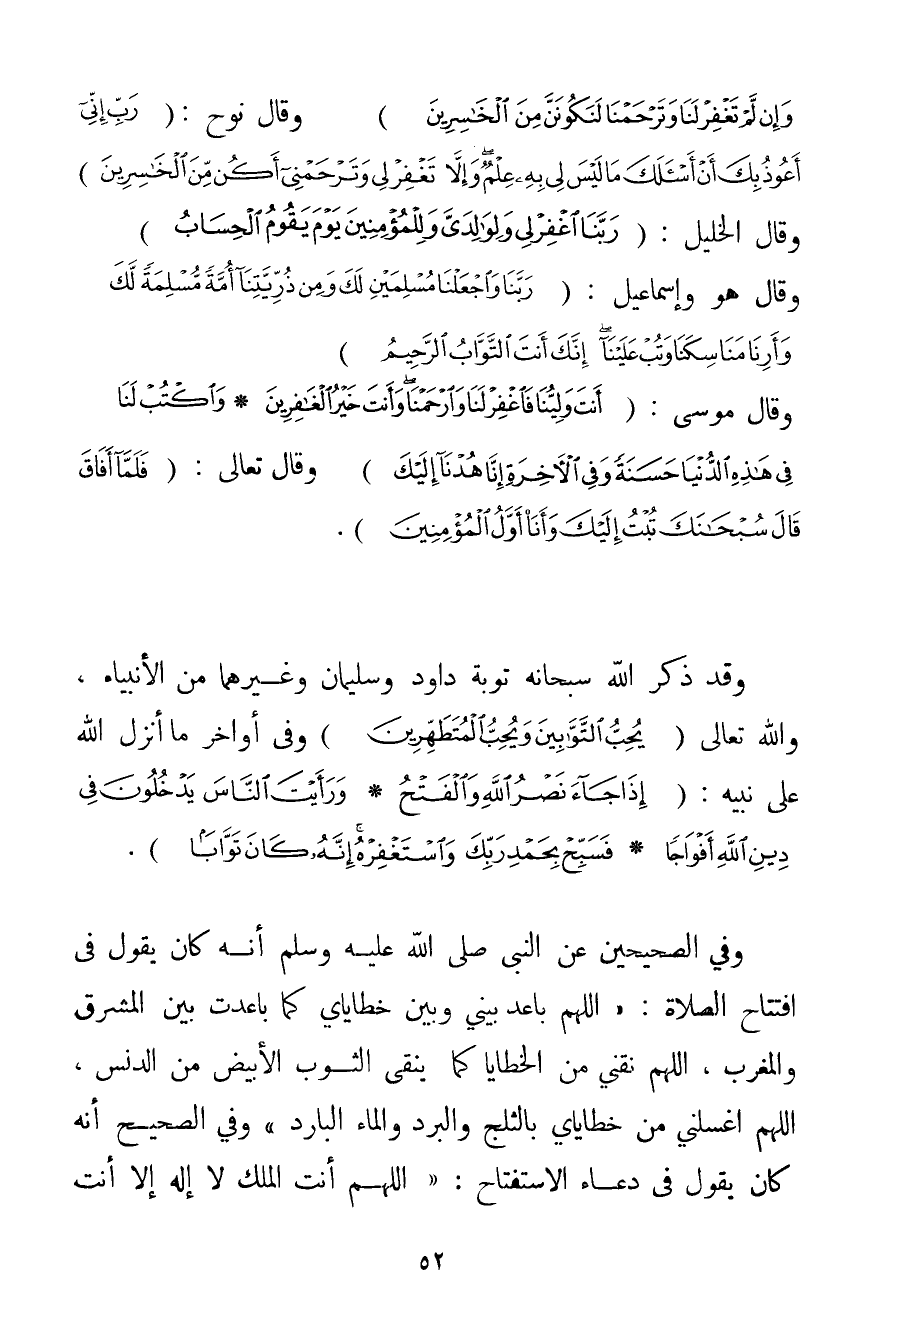 وَإِن لَّمْ تَغْفِرْ لَنَا وَتَرْحَمْنَا لَنَكُونَنَّ مِنَ ٱلْخَٰسِرِينَ ) وقال نوح : ( رَبِّ إِنِّىٓ
أَعُوذُ بِكَ أَنْ أَسْـَٔلَكَ مَا لَيْسَ لِى بِهِۦ عِلْمٌ ۖ وَإِلَّا تَغْفِرْ لِى وَتَرْحَمْنِىٓ أَكُن مِّنَ ٱلْخَٰسِرِينَ )
وقال الخليل : ( رَبَّنَا ٱغْفِرْ لِى وَلِوَٰلِدَىَّ وَلِلْمُؤْمِنِينَ يَوْمَ يَقُومُ ٱلْحِسَابُ )
وقال هو وإسماعيل : ( رَبَّنَا وَٱجْعَلْنَا مُسْلِمَيْنِ لَكَ وَمِن ذُرِّيَّتِنَآ أُمَّةً مُّسْلِمَةً لَّكَ
وَأَرِنَا مَنَاسِكَنَا وَتُبْ عَلَيْنَآ ۖ إِنَّكَ أَنتَ ٱلتَّوَّابُ ٱلرَّحِيمُ )
وقال موسى : ( أَنتَ وَلِيُّنَا فَٱغْفِرْ لَنَا وَٱرْحَمْنَا ۖ وَأَنتَ خَيْرُ ٱلْغَٰفِرِينَ * وَٱكْتُبْ لَنَا
فِى هَٰذِهِ ٱلدُّنْيَا حَسَنَةً وَفِى ٱلْأَخِرَةِ إِنَّا هُدْنَآ إِلَيْكَ ) وقال تعالى : ( فَلَمَّآ أَفَاقَ
قَالَ سُبْحَٰنَكَ تُبْتُ إِلَيْكَ وَأَنَا۠ أَوَّلُ ٱلْمُؤْمِنِينَ ) .
وقد ذكر الله سبحانه توبة داود وسليمان وغيرهما من الأنبياء ،
والله تعالى ( يُحِبُّ ٱلتَّوَّٰبِينَ وَيُحِبُّ ٱلْمُتَطَهِّرِينَ ) وفى أواخر ما أنزل الله
على نبيه : ( إِذَا جَآءَ نَصْرُ ٱللَّهِ وَٱلْفَتْحُ * وَرَأَيْتَ ٱلنَّاسَ يَدْخُلُونَ فِى
دِينِ ٱللَّهِ أَفْوَاجًا * فَسَبِّحْ بِحَمْدِ رَبِّكَ وَٱسْتَغْفِرْهُ ۚ إِنَّهُۥ كَانَ تَوَّابًۢا ) .
وفي الصحيحين عن النبى صلى الله عليه وسلم أنه كان يقول فى
افتتاح الصلاة : « اللهم باعد بيني وبين خطاياي كما باعدت بين المشرق
والمغرب ، اللهم نقني من الخطايا كما ينقى الثوب الأبيض من الدنس ،
اللهم اغسلني من خطاياي بالثلج والبرد والماء البارد » وفي الصحيح أنه
كان يقول فى دعاء الاستفتاح : « اللهم أنت الملك لا إله إلا أنت
٥٢